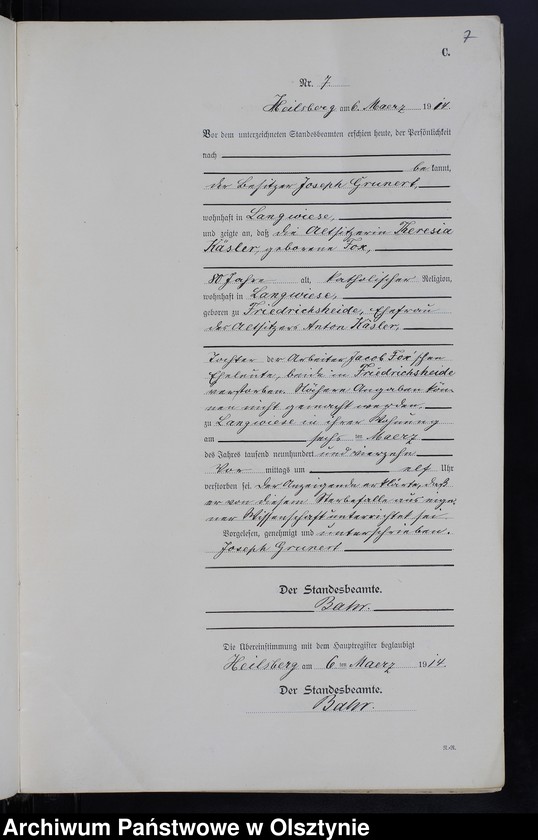 7
C.
Nr. 7
Heilsberg am 6. Maerz 1914.
Vor dem unterzeichneten Standesbeamten erschien heute, der Persönlichkeit
nach
bekannt,
der Besitzer Joseph Grunert,
wohnhaft in Langwiese,
und zeigte an, daß die Altsitzerin Theresia
Käsler, geborene Fox,
80 Jahre alt, katholischer Religion,
wohnhaft in Langwiese,
geboren zu Friedrichsheide, Ehefrau
des Altsitzers Anton Käsler,
Tochter der Arbeiter Jacob Fox'schen
Eheleute, beide in Friedrichsheide
verstorben. Nähere Angaben kön-
nen nicht gemacht werden,
zu Langwiese in ihrer Wohnung
am sechs ten Maerz
des Jahres tausend neunhundert und vierzehn
Vor mittags um elf Uhr
verstorben sei. Der Anzeigende erklärte, daß
er von diesem Sterbefalle aus eige-
ner Wissenschaft unterrichtet sei.
Vorgelesen, genehmigt und unterschrieben.
Joseph Grunert
Der Standesbeamte.
Bahr.
Die Übereinstimmung mit dem Hauptregister beglaubigt
Heilsberg am 6 ten Maerz 1914.
Der Standesbeamte.
Bahr.
Archiwum Państwowe w Olsztynie